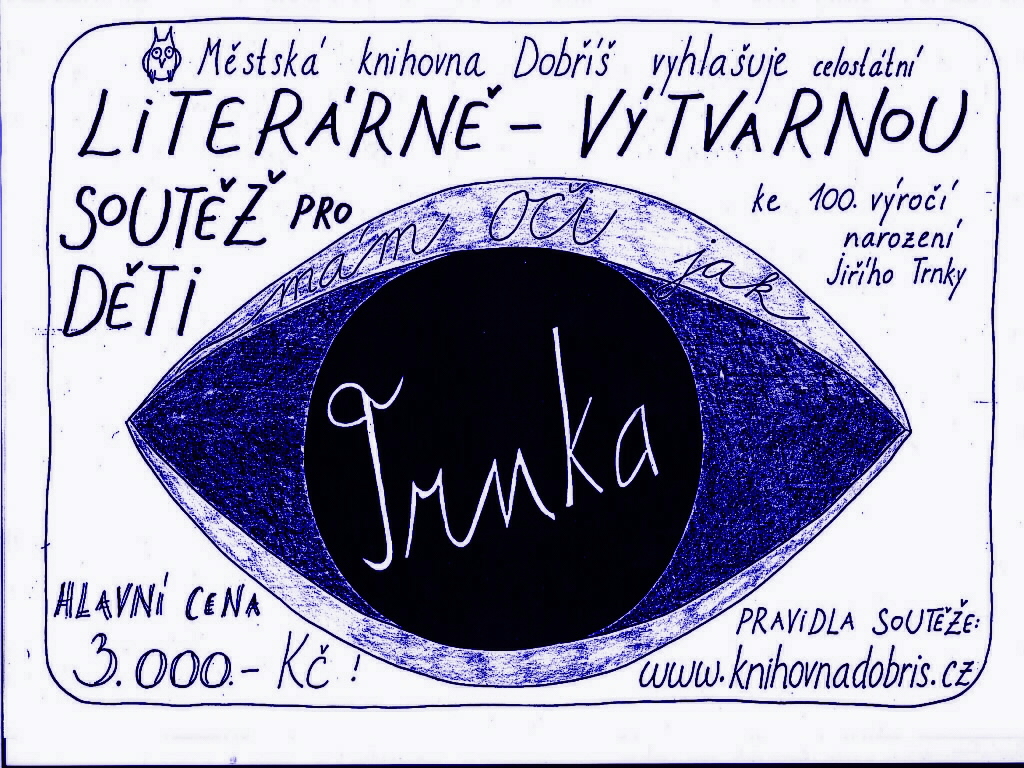 Městská knihovna Dobříš vyhlašuje celostátní
LITERÁRNĚ - VÝTVARNOU
SOUTĚŽ PRO
DĚTI
ke 100. výročí
narození
Jiřího Trnky
mám oči jak
Trnka
HLAVNÍ CENA
3.000.- Kč !
PRAVIDLA SOUTĚŽE:
www.knihovnadobris.cz